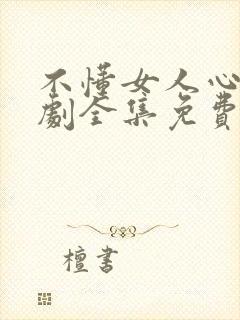 不懂女人心
劇全集免費
檀書